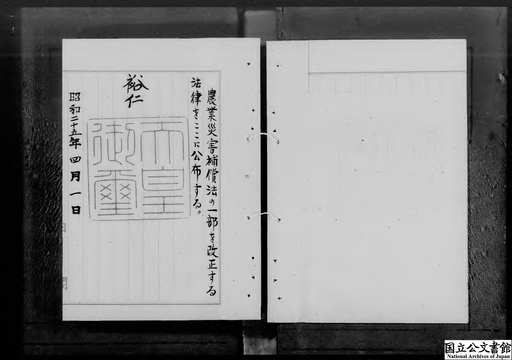 農業災害補償法の一部を改正する
法律をここに公布する。
裕仁
天皇
御璽
昭和二十五年四月一日
国立公文書館
National Archives of Japan